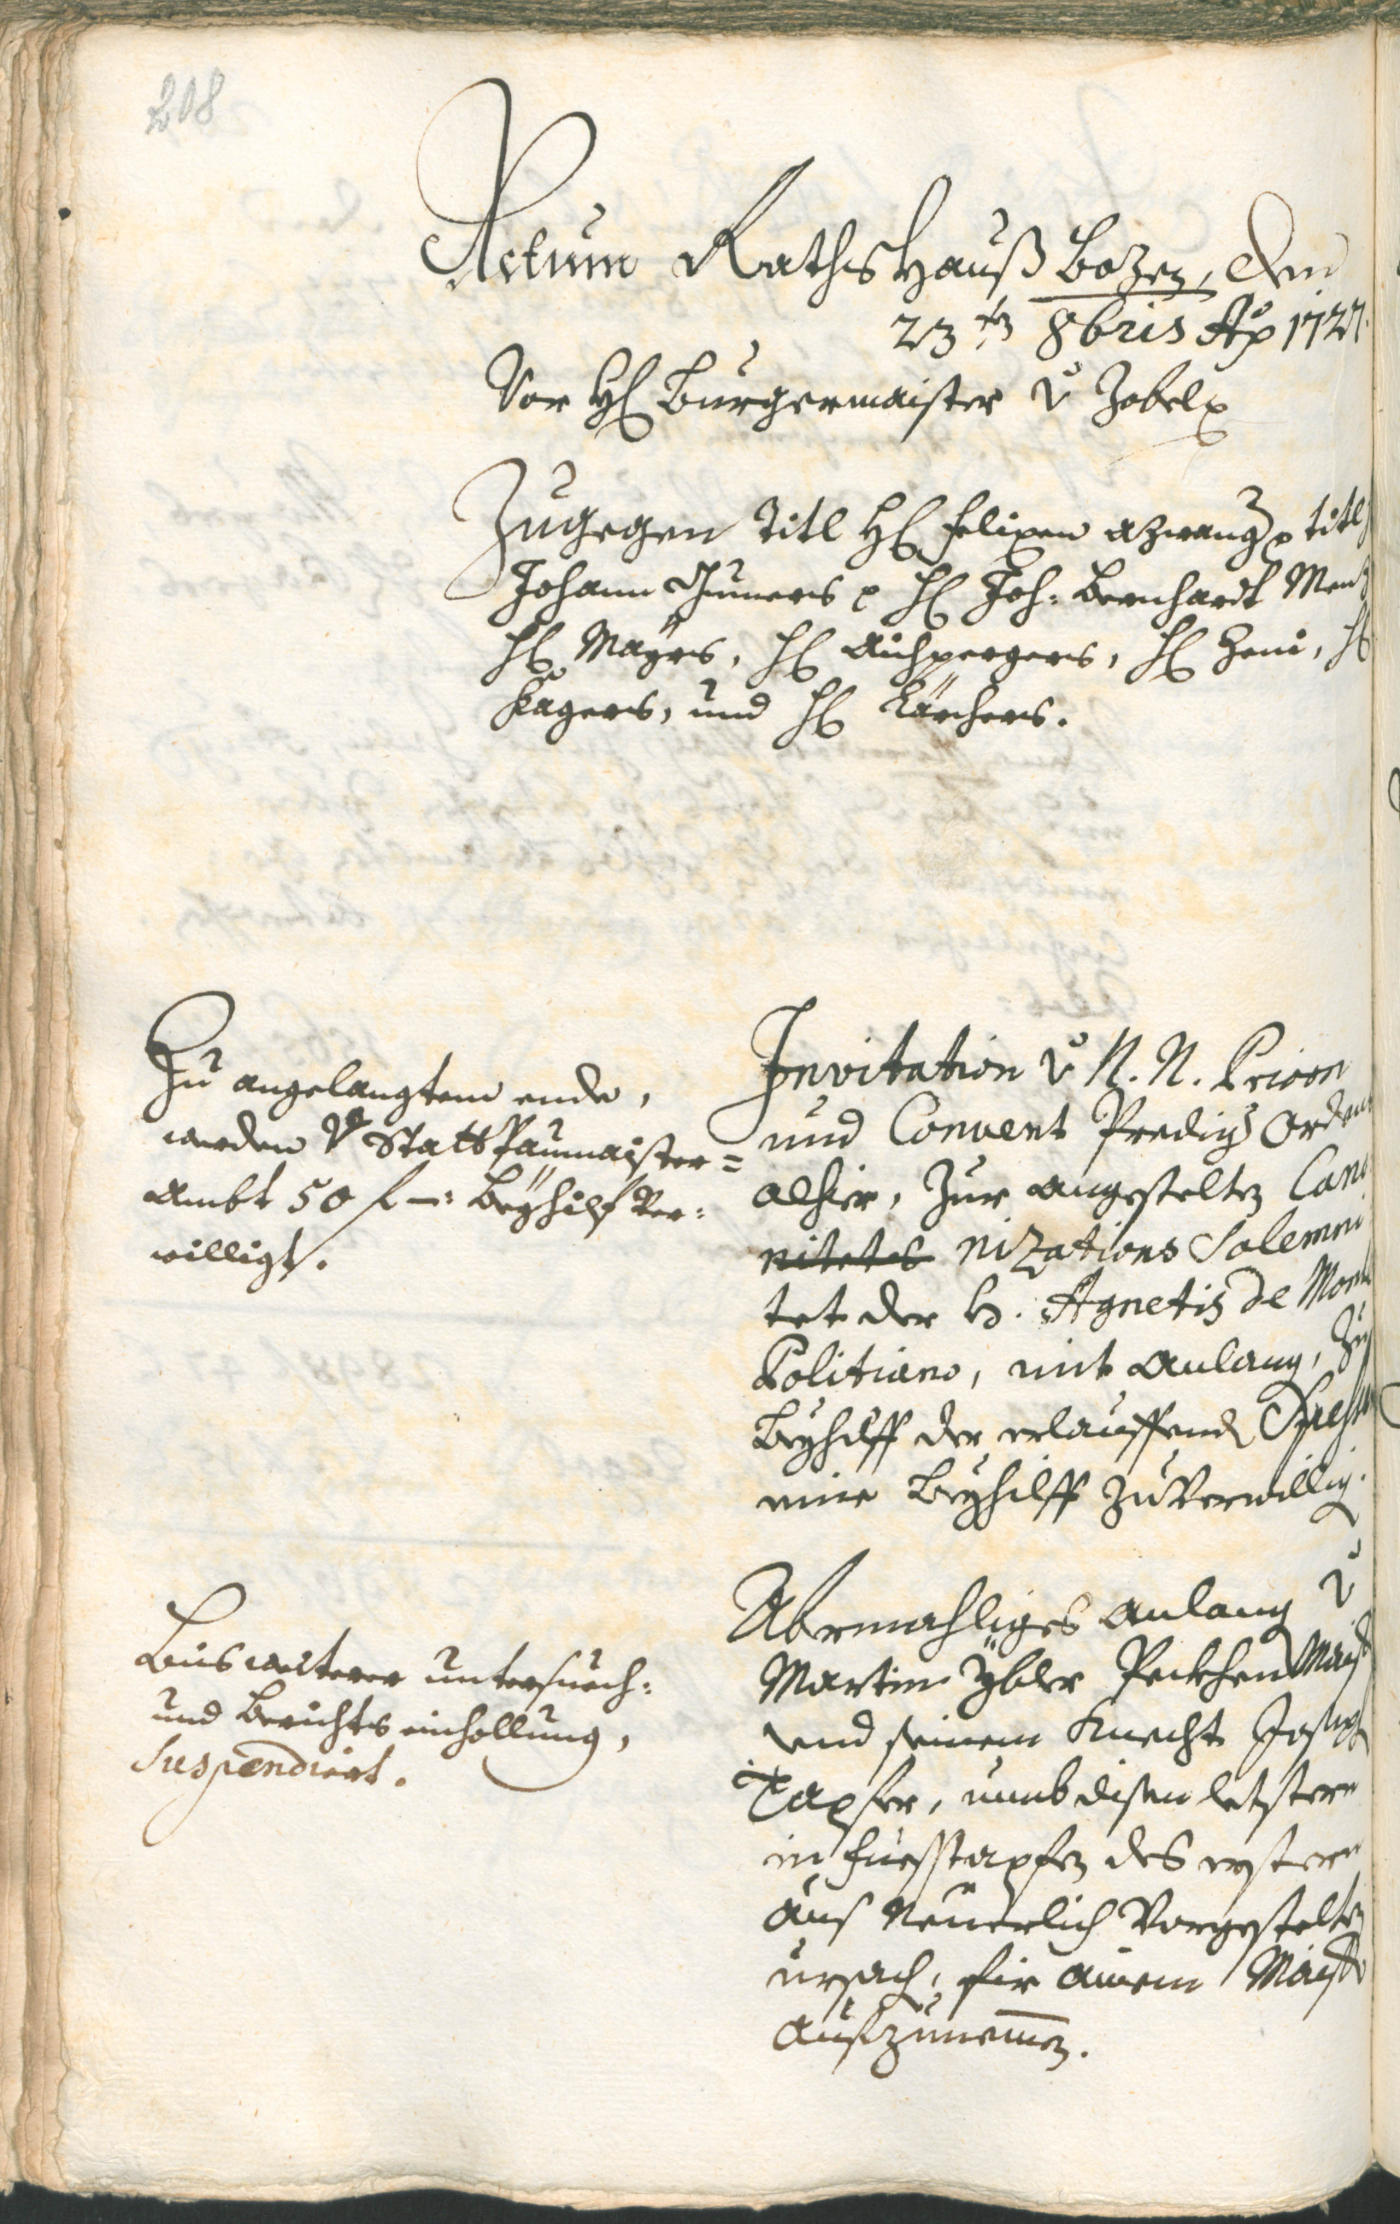 208
Actum RathsHauß Bozen, den
23ten 8bris Ao 1727.
Vor H: Burgermaister v Zobel
Zugegen Titl H: Felixen azwang titl
Johann Thuners H: Joh: Bernhardt Menz
H: Mayrs, H: Aichpergers, H: Zeni, H:
Kägers, und H: Kärchers.
Zu angelangtem ende,
werden v Statt Paumaister=
Ambt 50 f —: Beyhilf ver:
willigt.
Invitation v N. N. Priorn
und Convent Predig Ordens
alhier, Zur angestelten Cano
nitets nizations Solemni
tet der H. Agnetis de Monte
Politiano, mit anlang, zu
Beyhilff der erlauffend
eine Beyhilff zuverwillig.
Bis weiterer untersuech:
und Berichts einhollung,
suspendiert.
Abermahliges anlang v
Martin Ybler Peckhen Maist
und seinem Knecht Joseph
Tapfer, umb disen letstern
in fuesstapfen des erstern
aus Neuerlich Vorgestelten
ursach, fir ainem Maist
aufzunemen.